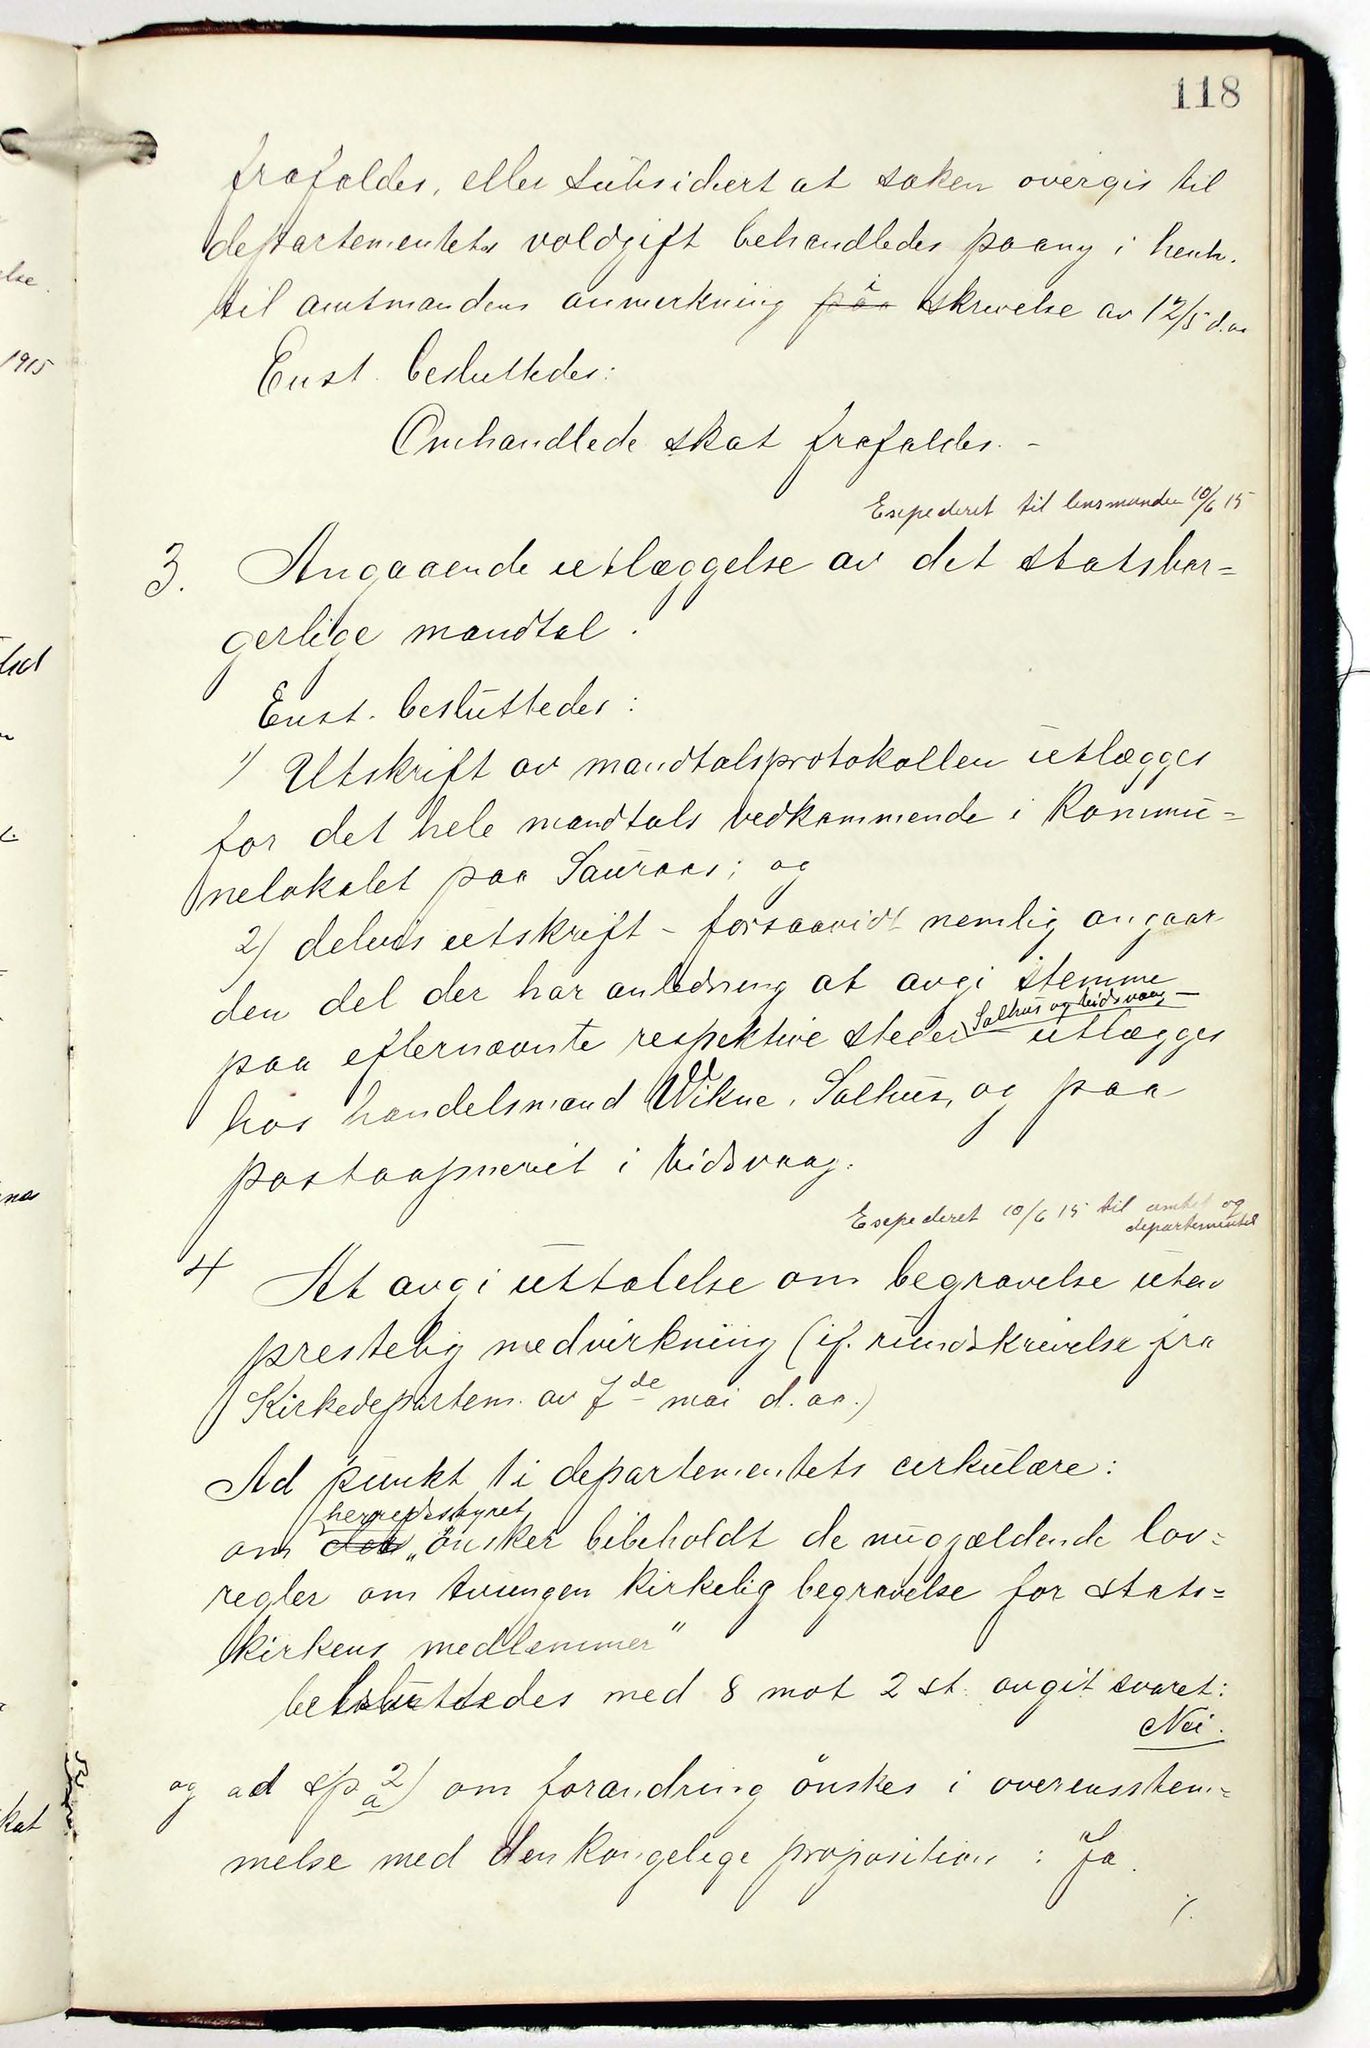 118
frafaldes, eller subsidiert at saken overgis til
departementets voldgift behandledes paany i henh.
til amtmandens anmerkning paa i skrivelse av 12/5 d.aa
Enst. besluttedes:
Omhandlede skat frafaldes. -
Exspederet til lensmanden 10/6 15
3. Angaaende utlæggelse av det statsbor=
gerlige mandtal.
Enst. besluttedes:
1) Utskrift av mandtalsprotokollen utlægges
for det hele mandtals vedkommende i Kommu=
nelokalet paa Sauraas; og
2) delvis utskrift - forsaavidt nemlig angaar
den del der har anledning at avgi stemme
paa efternævnte respektive steder Salhus og Eidsvaag - utlægges
hos handelsmand Wikne, Salhus, og paa
postaapneriet i Eidsvaag.
Exspederet 10/6 15 til amtet og
departementet
4 At avgi uttalelse om begravelse uten
prestelig medvirkning (jf. rundskrivelse fra
Kirkedepartem. av 7de mai d. aa.)
Ad punkt 1 i departementets cirkulære:
om det herredsstyret „ønsker bibeholdt de nugjældende lov=
regler om tvungen kirkelig begravelse for stats=
kirkens medlemmer"
besluttedes med 8 mot 2 st. avgit svaret:
Nei.
og ad sp 2) a om forandring ønskes i overensstem=
melse med den kongelige proposition : Ja.
/.